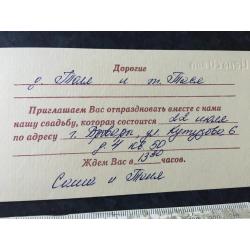 Дорогие
д. Толя и т. Тася
Приглашаем Вас отпраздновать вместе с нами
нашу свадьбу, которая состоится 22 июля
по адресу г. ул Кутузова 6
д. 4 кв. 50
Ждем Вас в 13 30 часов.
Саша и Таня